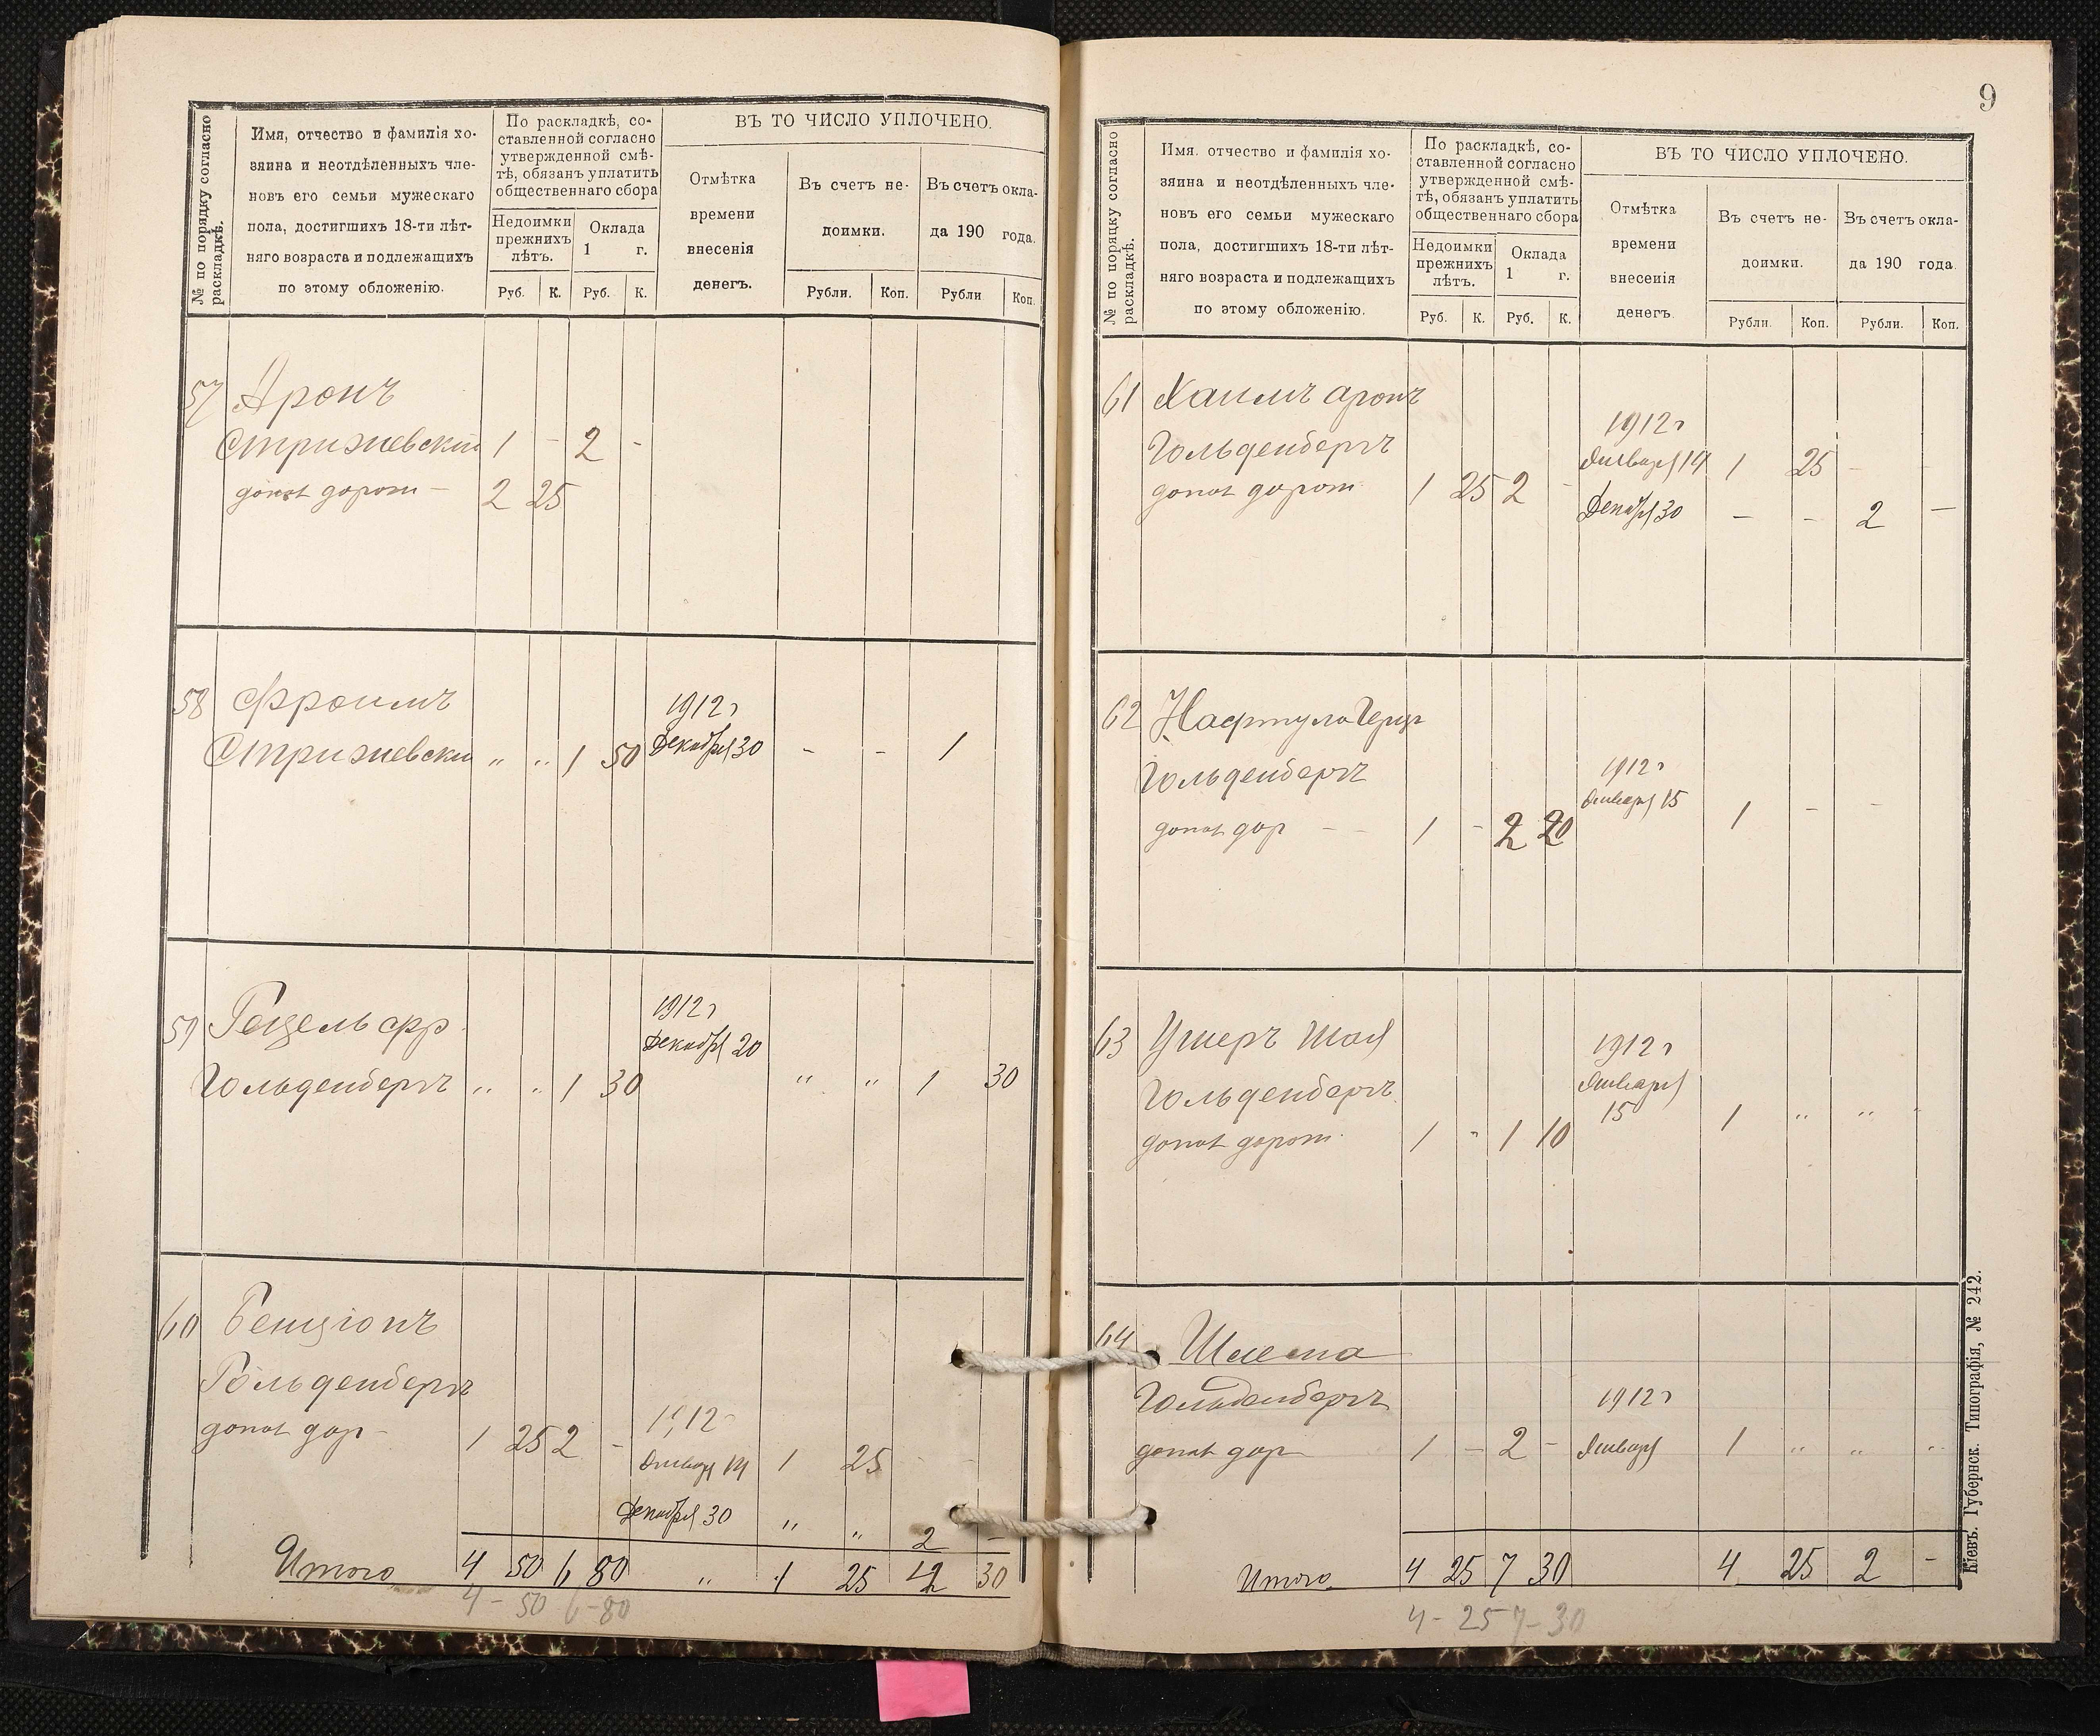 № по порядку согласно раскладкѣ.
Имя, отчество и фамилія хо-
зяина и неотдѣленныхъ чле-
новъ его семьи мужескаго
пола, достигшихъ 18-ти лѣт-
няго возраста и подлежащихъ
по этому обложенію.
По раскладкѣ, со-
ставленной согласно
утвержденной смѣ-
тѣ, обязанъ уплатить
общественнаго сбора
Недоимки
прежнихъ
лѣтъ.
Оклада
1 г.
Руб. К. Руб. К.
ВЪ ТО ЧИСЛО УПЛОЧЕНО.
Отмѣтка
времени
внесенія
денегъ.
Въ счетъ не-
доимки.
Въ счетъ окла-
да 190 года.
Рубли. Коп. Рубли Коп.
57 Аронъ
Стрижевский 1 - 2 -
дорот - 2 25
58 Фроимъ 1912 г
Стрижевски " " 1 50 Декабря 30 - - 1
59 Гецель фр 1912 г
Декабря 20
Гольденбергъ " " 1 30 " " 1 30
60 Бенціонъ
Гольденбергъ
дор - 1 25 2 - 1912
Январ 14 1 25 - -
Декабря 30 " " 2 -
Итого 4 50 6 80 " 1 25 12 30
4 - 50 6 - 80
9
№ по порядку согласно раскладкѣ.
Имя. отчество и фамилія хо-
зяина и неотдѣленныхъ чле-
новъ его семьи мужескаго
пола, достигшихъ 18-ти лѣт-
няго возраста и подлежащихъ
по этому обложенію.
По раскладкѣ, со-
ставленной согласно
утвержденной смѣ-
тѣ, обязанъ уплатить
общественнаго сбора
Недоимки
прежнихъ
лѣтъ.
Оклада
1 г.
Руб. К. Руб. К.
ВЪ ТО ЧИСЛО УПЛОЧЕНО.
Отмѣтка
времени
внесенія
денегъ.
Въ счетъ не-
доимки.
Въ счетъ окла-
да 190 года.
Рубли. Коп. Рубли. Коп.
61 Хаимъ аронъ
Гольденбергъ 1912 г
Января 14 1 25 - -
дорот 1 25 2 -
Декабря 30 - - 2 -
62 Нафтула Герцъ
Гольденбергъ 1912 г
Января 15 1 - -
дор - - 1 - 2 20
63 Ушеръ Шая 1912 г
Гольденбергъ Января
15 1 " " "
дорот 1 " 1 10
64 Шлема
Гольденбергъ 1912 г
дор 1 - 2 - Января 1 " " "
Итого 4 25 7 30 4 25 2 -
4 - 25 7 - 30
Кіевъ. Губернск. Типографія, № 242.